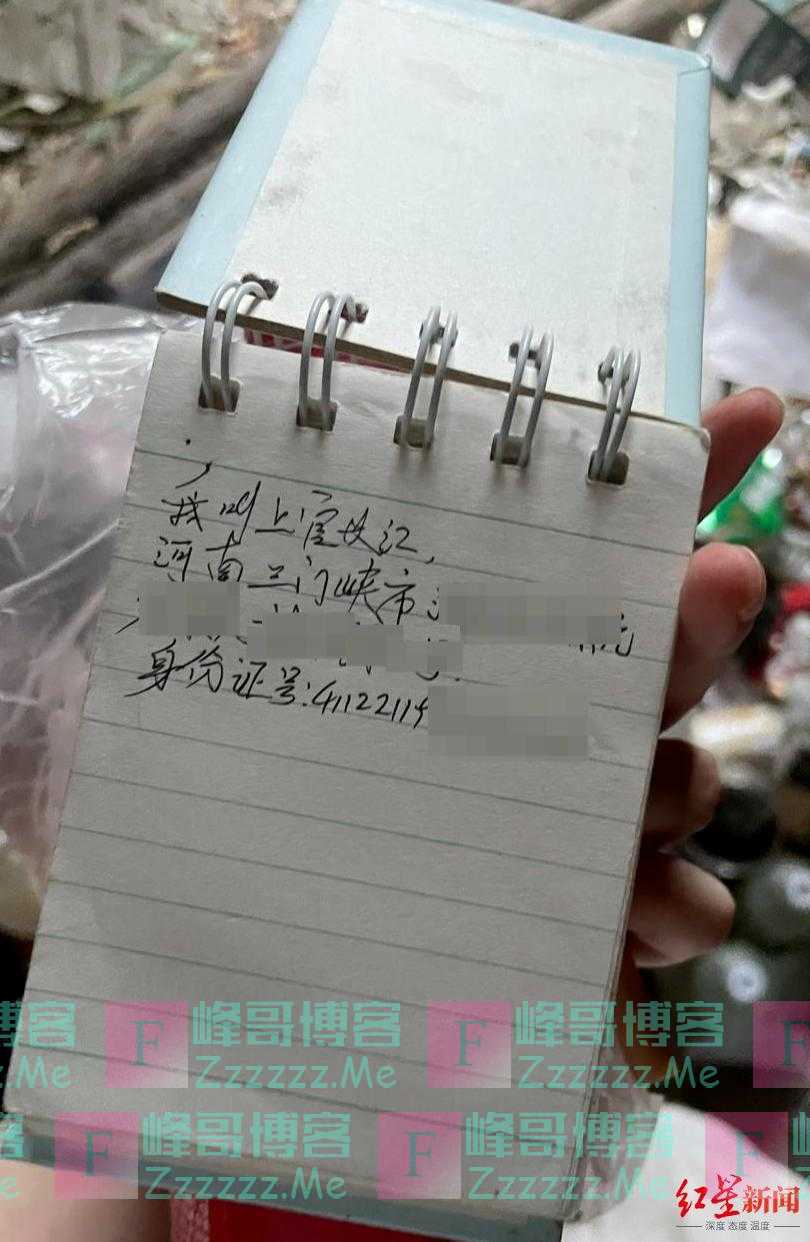 我叫上官长江,
河南三门峡市
身份证号:4112211
峰哥博客 F 峰哥博客 F 峰哥博客 F
Zzzzzz.Me Zzzzzz.Me Zzzzzz.Me
F 峰哥博客 F 峰哥博客 F
Zzzzzz.Me Zzzzzz.Me
红星新闻
深度 态度 温度